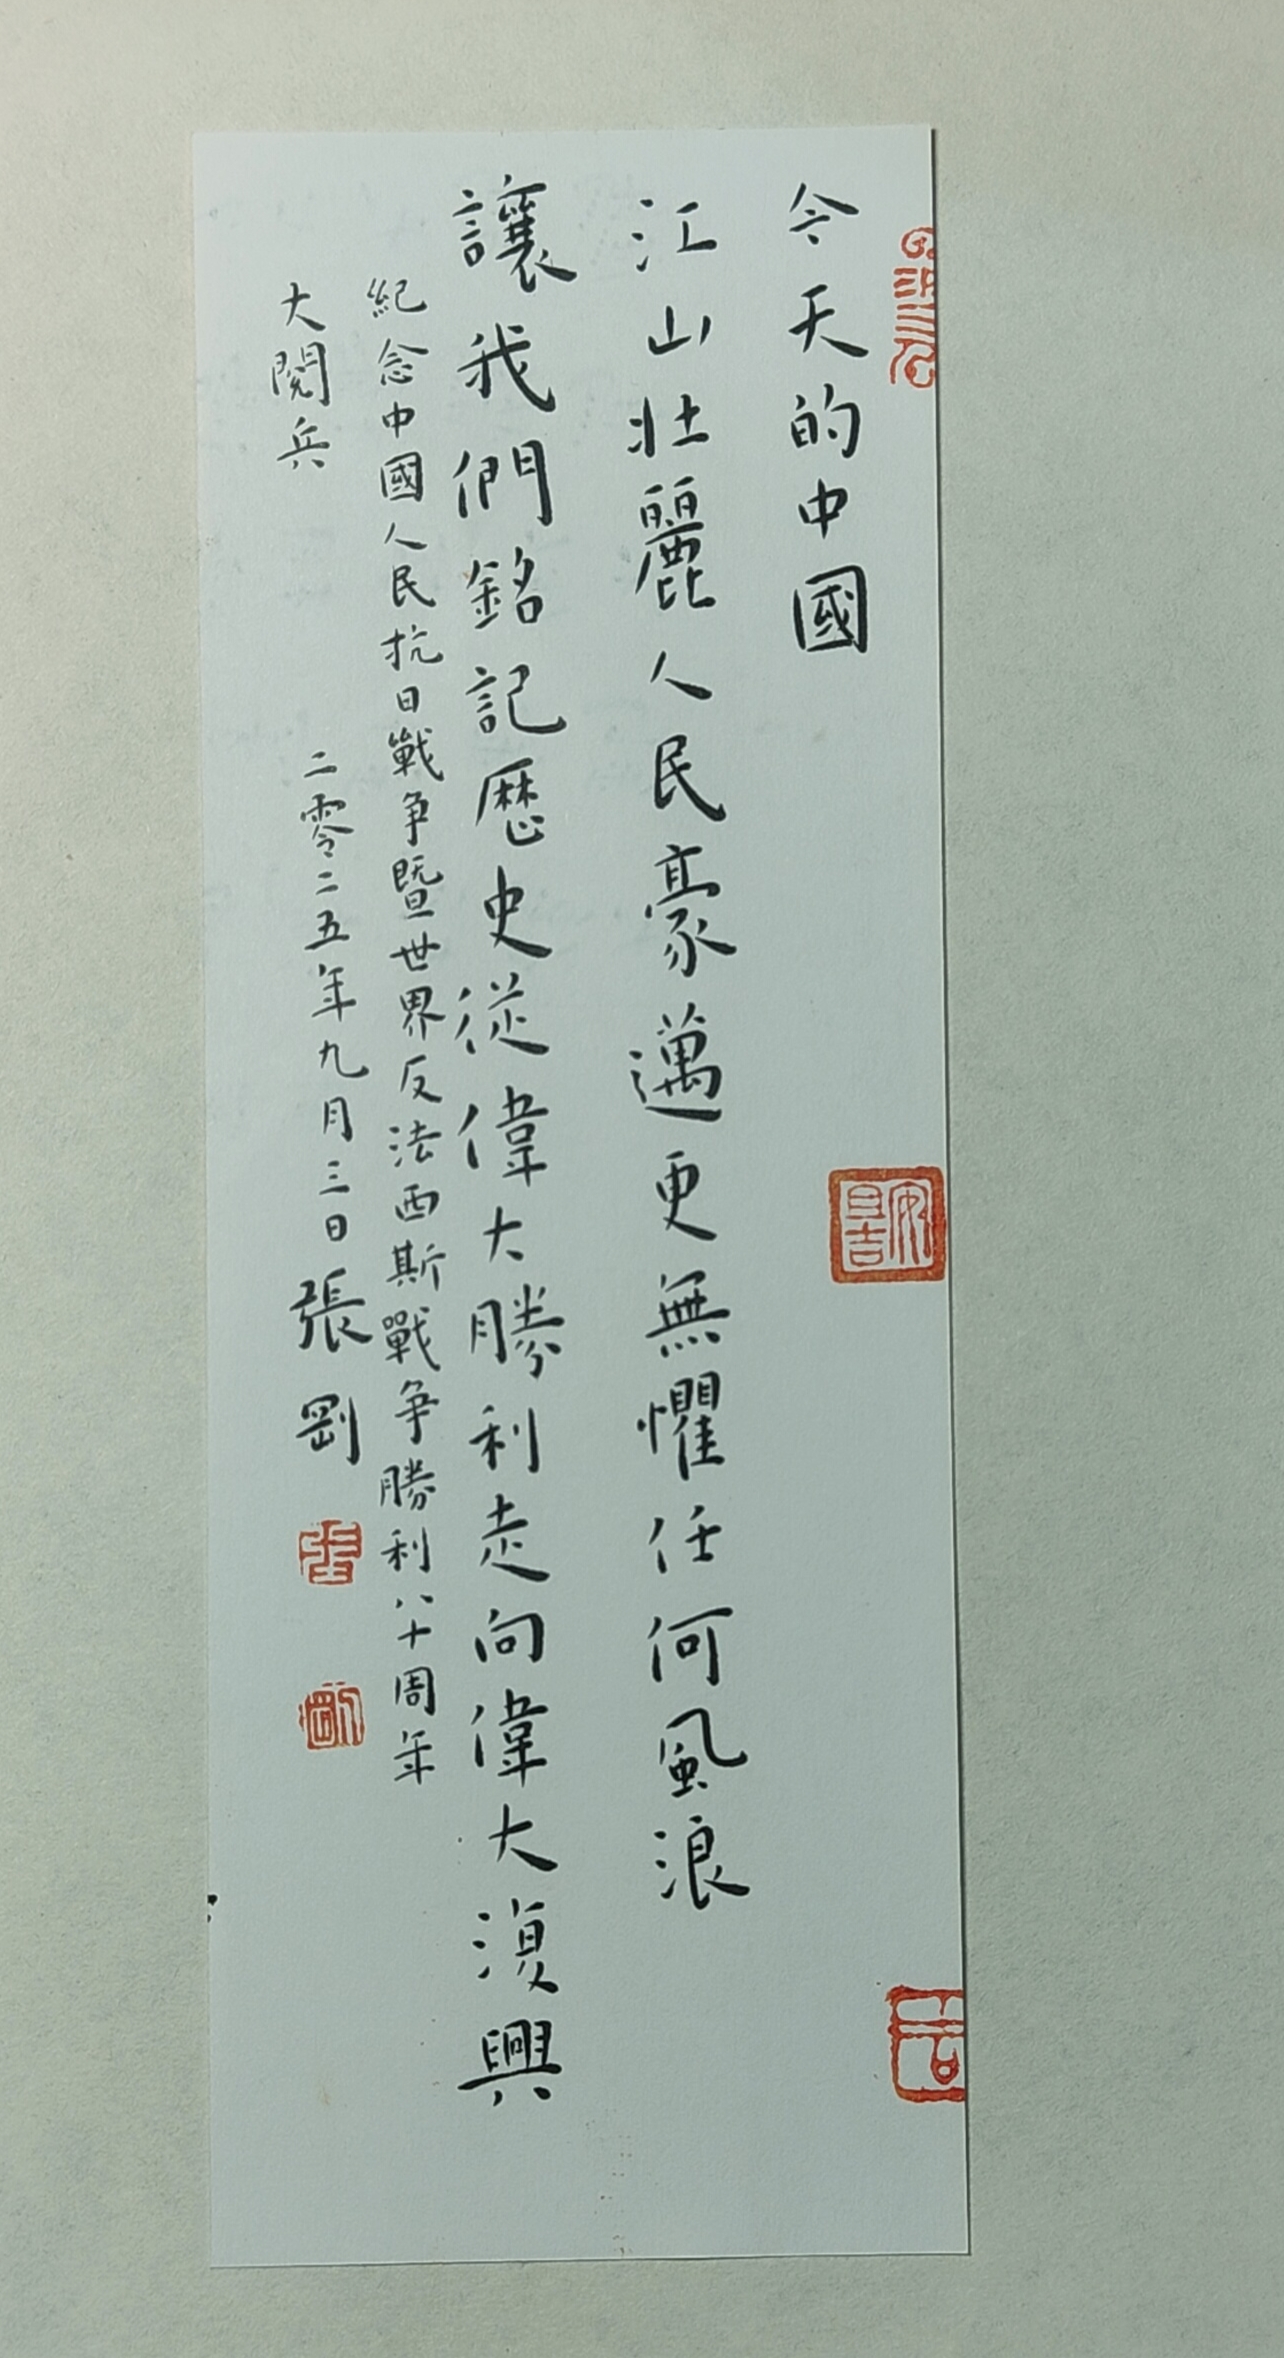 今天的中國
江山壯麗人民豪邁更無懼任何風浪
讓我們銘記歷史從偉大勝利走向偉大復興
紀念中國人民抗日戰争暨世界反法西斯戰争勝利八十周年
大閱兵 二零二五年九月三日 張剛